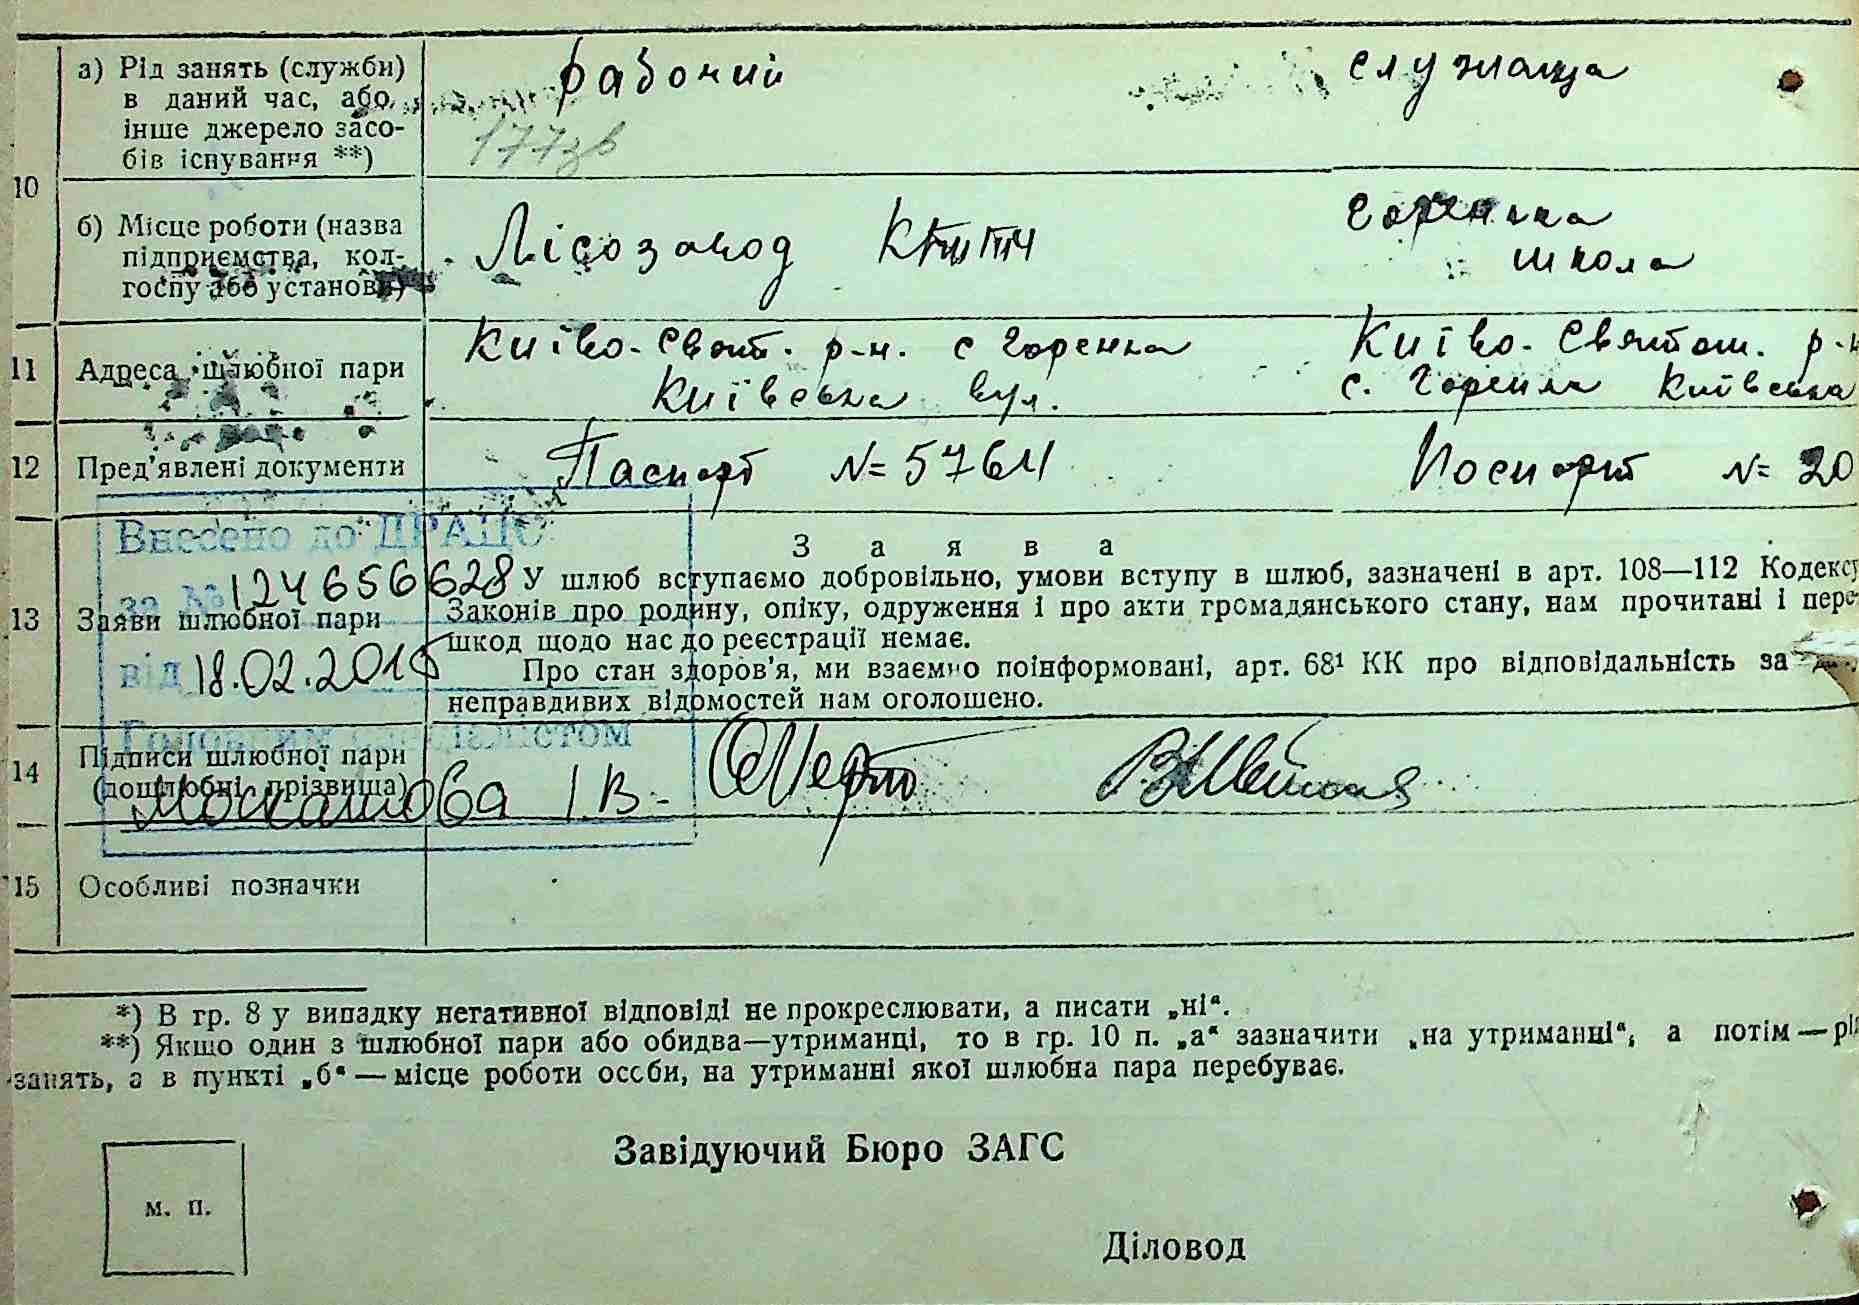 10
а) Рід занять (служби)
в даний час, або
інше джерело засо-
бів існування **)
рабочий
служаща
177зв
б) Місце роботи (назва
підприємства, кол-
госпу або установи)
Лісозавод
Горенька
школа
11
Адреса шлюбної пари
Київо-Свят. р-н. с Горенка
Київська вул.
Київо-Святош. р-н
с. Горенка Київська
12
Пред'явлені документи
Паспорт № 57611
Паспорт № 20
Внесено до ДРАЦС
за № 124656628
від 18.02.2015
Головним спеціалістом
Москальова І.В.
13
Заяви шлюбної пари
Заява
У шлюб вступаємо добровільно, умови вступу в шлюб, зазначені в арт. 108—112 Кодексу
Законів про родину, опіку, одруження і про акти громадянського стану, нам прочитані і пере-
шкод щодо нас до реєстрації немає.
Про стан здоров'я, ми взаємно поінформовані, арт. 68¹ КК про відповідальність за
неправдивих відомостей нам оголошено.
14
Підписи шлюбної пари
(дошлюбні прізвища)
15
Особливі позначки
*) В гр. 8 у випадку негативної відповіді не прокреслювати, а писати „ні“.
**) Якщо один з шлюбної пари або обидва—утриманці, то в гр. 10 п. „а“ зазначити „на утриманні“, а потім — рід
занять, а в пункті „б“ — місце роботи особи, на утриманні якої шлюбна пара перебуває.
Завідуючий Бюро ЗАГС
м. п.
Діловод